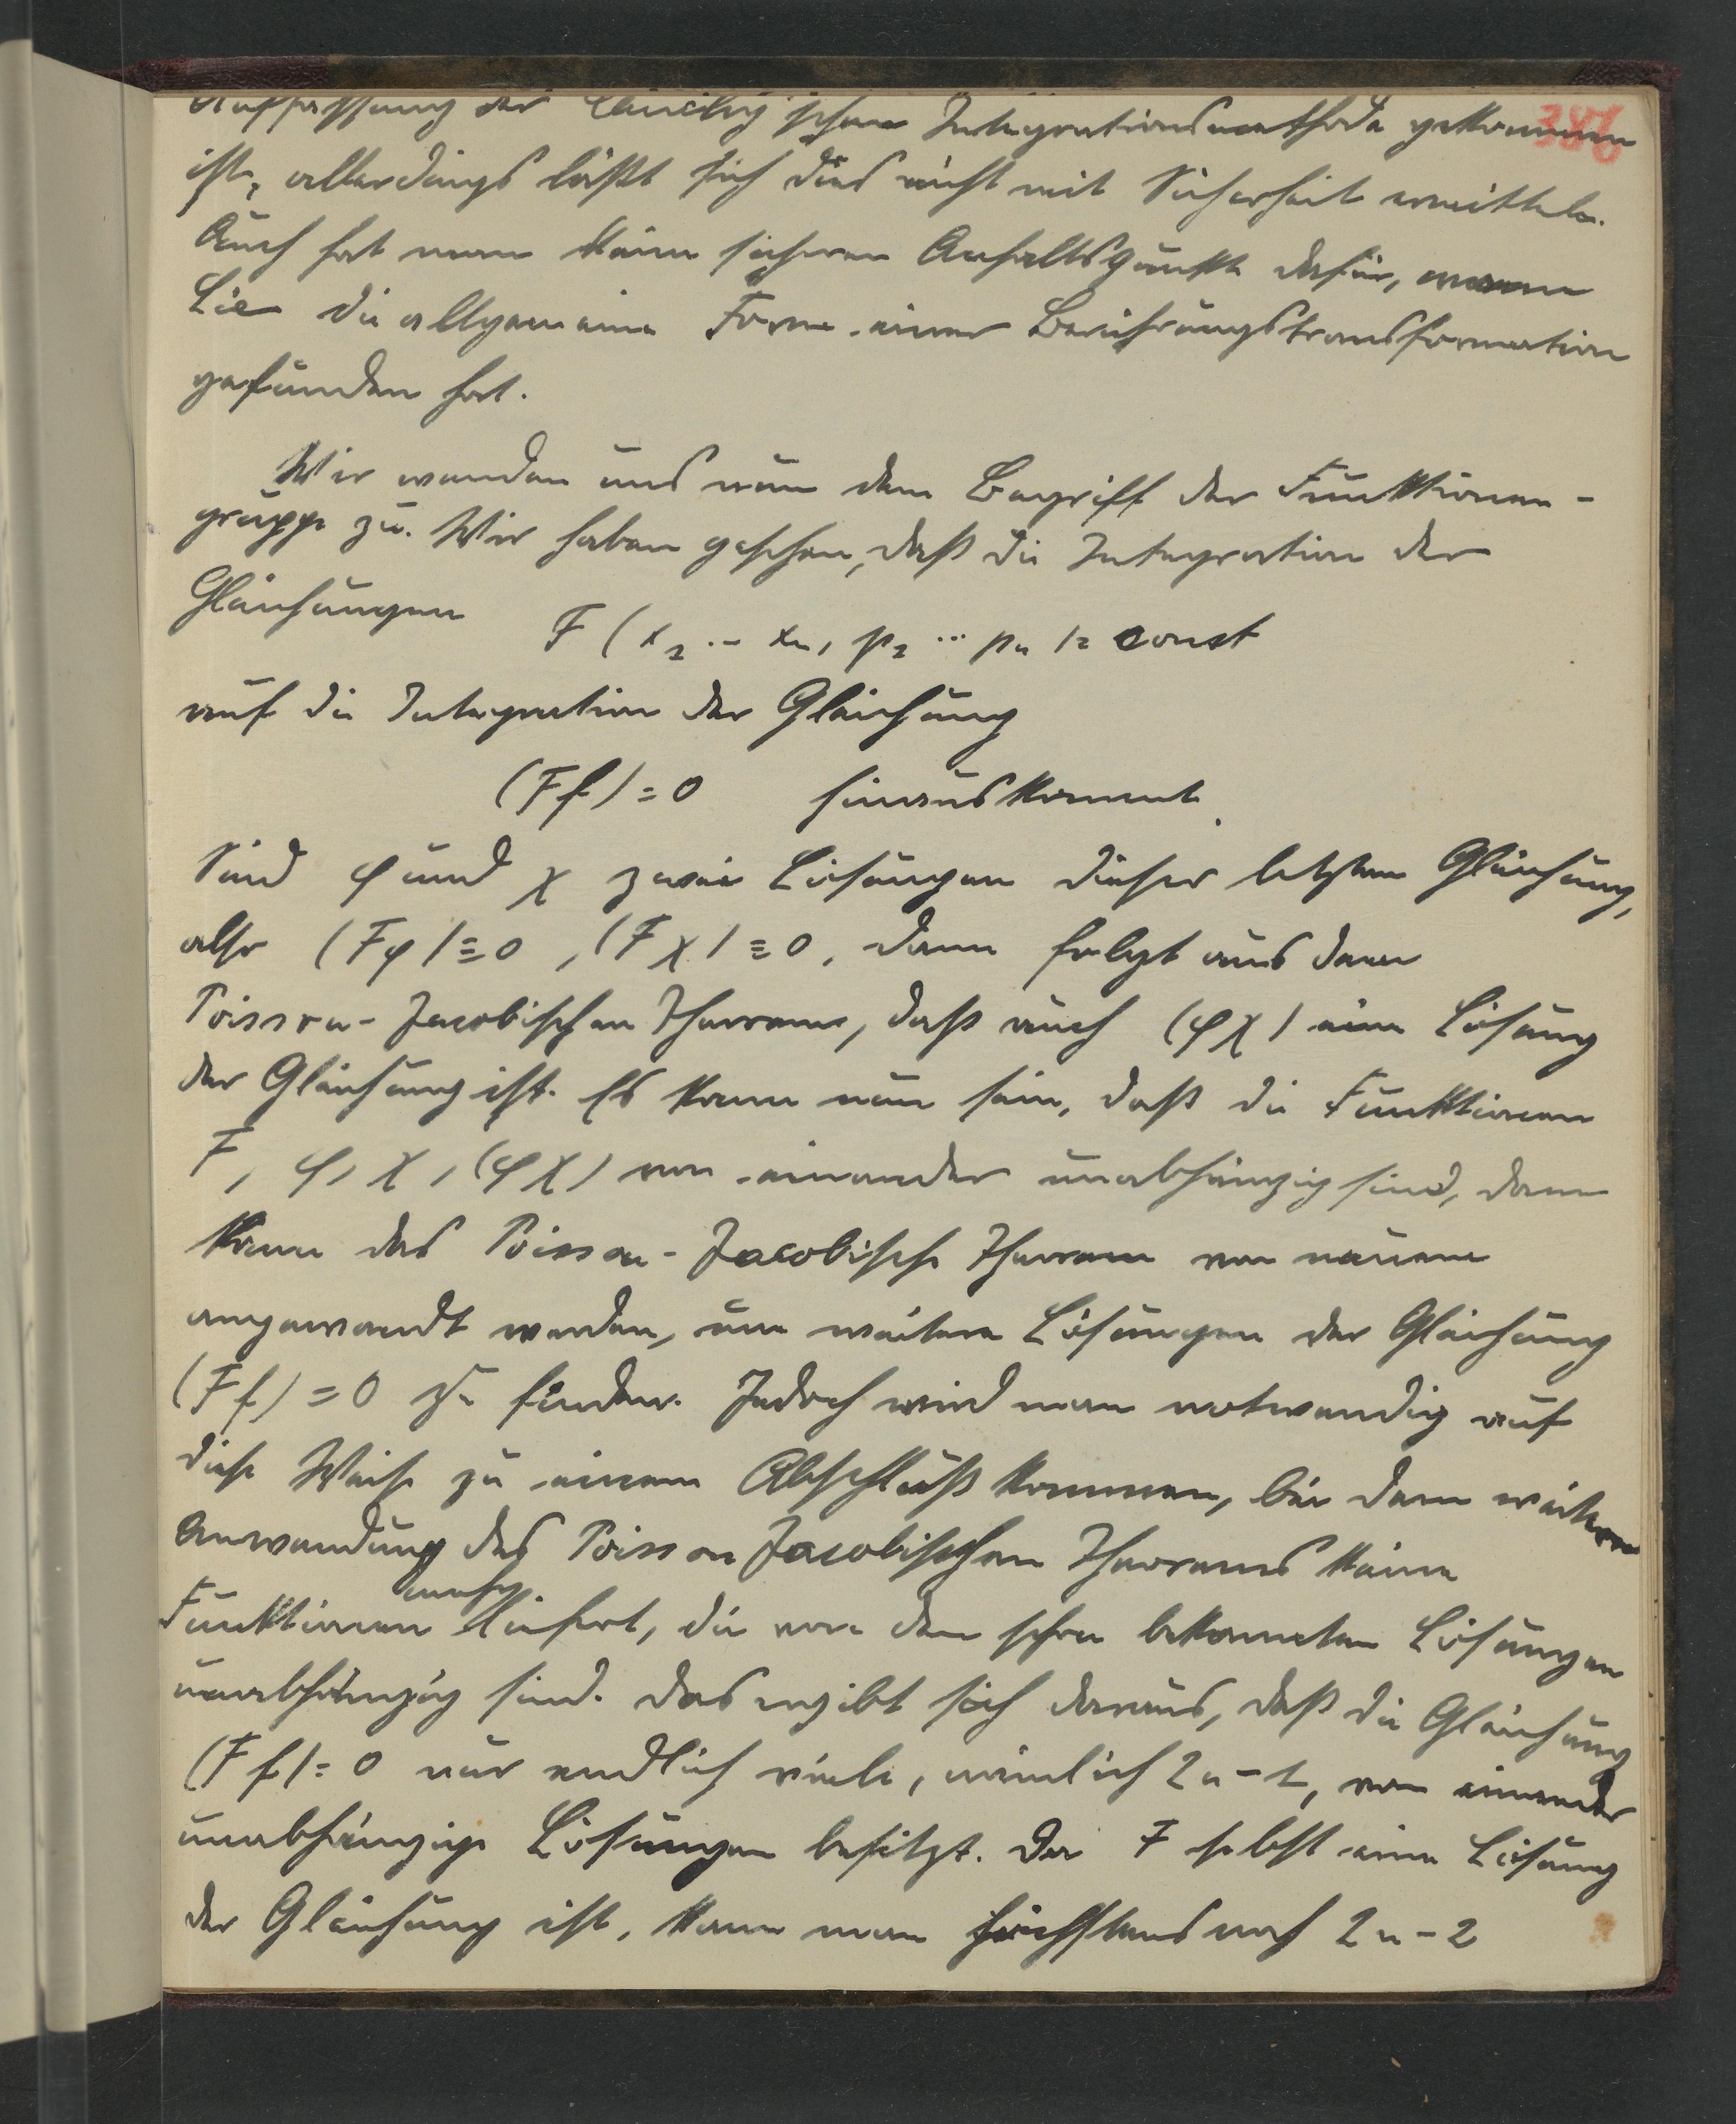 386
Auffassung der Cauchy'schen Integrationsmethode gekommen
ist, allerdings läßt sich dies nicht mit Sicherheit ermitteln.
Auch hat man keine sicheren Anhaltspunkte dafür, wann
Lie die allgemeine Form einer Berührungstransformation
gefunden hat.
Wir wenden uns nun dem Begriff der Funktionen-
gruppe zu. Wir haben gesehen, daß die Integration der
Gleichungen F (x₁ ... xₙ, p₁ ... pₙ) = const
auf die Integration der Gleichung
(Ff) = 0 hinauskommt.
Sind φ und χ zwei Lösungen dieser letzten Gleichung,
also (Fφ) ≡ 0, (Fχ) ≡ 0, dann folgt aus dem
Poisson-Jacobischen Theorem, daß auch (φχ) eine Lösung
der Gleichung ist. Es kann nun sein, daß die Funktionen
F, φ, χ, (φχ) von einander unabhängig sind, dann
kann das Poisson-Jacobische Theorem von neuem
angewandt werden, um weitere Lösungen der Gleichung
(Ff) = 0 zu finden. Jedoch wird man notwendig auf
diese Weise zu einem Abschluß kommen, bei dem weitere
Anwendung des Poisson Jacobischen Theorems keine
Funktionen mehr liefert, die von den schon bekannten Lösungen
unabhängig sind. Das ergibt sich daraus, daß die Gleichung
(Ff) = 0 nur endlich viele, nämlich 2n-1, von einander
unabhängige Lösungen besitzt. Da F selbst eine Lösung
der Gleichung ist, kann man höchstens noch 2n-2